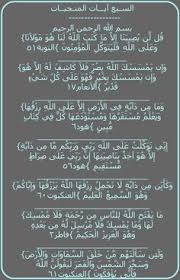 السبع آيات المنجيات
بسم الله الرحمن الرحيم
قُل لَّن يُصِيبَنَا إِلَّا مَا كَتَبَ اللَّهُ لَنَا هُوَ مَوْلَانَا
وَعَلَى اللَّهِ فَلْيَتَوَكَّلِ الْمُؤْمِنُونَ }التوبة٥١
وَإِن يَمْسَسْكَ اللَّهُ بِضُرٍّ فَلَا كَاشِفَ لَهُ إِلَّا هُوَ
وَإِن يَمْسَسْكَ بِخَيْرٍ فَهُوَ عَلَى كُلِّ شَيْءٍ
قَدِيرٌ }الأنعام١٧
وَمَا مِن دَابَّةٍ فِي الْأَرْضِ إِلَّا عَلَى اللَّهِ رِزْقُهَا
وَيَعْلَمُ مُسْتَقَرَّهَا وَمُسْتَوْدَعَهَا كُلٌّ فِي كِتَابٍ
مُّبِينٍ }هود٦
إِنِّي تَوَكَّلْتُ عَلَى اللَّهِ رَبِّي وَرَبِّكُم مَّا مِن دَابَّةٍ
إِلَّا هُوَ آخِذٌ بِنَاصِيَتِهَا إِنَّ رَبِّي عَلَى صِرَاطٍ
مُّسْتَقِيمٍ }هود٥٦
وَكَأَيِّن مِن دَابَّةٍ لَا تَحْمِلُ رِزْقَهَا اللَّهُ يَرْزُقُهَا وَإِيَّاكُمْ
وَهُوَ السَّمِيعُ الْعَلِيمُ }العنكبوت٦٠
مَا يَفْتَحِ اللَّهُ لِلنَّاسِ مِن رَّحْمَةٍ فَلَا مُمْسِكَ لَهَا
وَمَا يُمْسِكْ فَلَا مُرْسِلَ لَهُ مِن بَعْدِهِ
وَهُوَ الْعَزِيزُ الْحَكِيمُ }فاطر٢
وَلَئِن سَأَلْتَهُم مَّنْ خَلَقَ السَّمَاوَاتِ وَالْأَرْضَ
وَسَخَّرَ الشَّمْسَ وَالْقَمَرَ لَيَقُولُنَّ اللَّهُ
فَأَنَّى يُؤْفَكُونَ }العنكبوت٦١